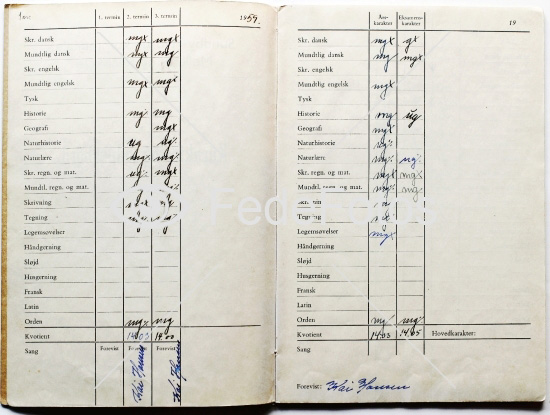 1. termin 2. termin 3. termin 1959.
Skr. dansk mgx mgx
Mundtlig dansk mgx mg
Skr. engelsk
Mundtlig engelsk mgx mgx
Tysk
Historie mg mg
Geografi mgx
Naturhistorie ug
Naturlære
Skr. regn. og mat.
Mundtl. regn. og mat.
Skrivning
Tegning
Legemsøvelser
Håndgerning
Sløjd
Husgerning
Fransk
Latin
Orden mg
Kvotient 14.03 14.00
Sang Forevist Forevist
Kai Hansen
Kai Hansen
Års-karakter Eksamens-karakter 19
Skr. dansk mgx gx
Mundtlig dansk mg mgx
Skr. engelsk
Mundtlig engelsk mgx
Tysk
Historie mg ug
Geografi mgx
Naturhistorie
Naturlære
Skr. regn. og mat. mgx
Mundtl. regn. og mat.
Tegning
Legemsøvelser mgx
Håndgerning
Sløjd
Husgerning
Fransk
Latin
Orden mg mg
Kvotient 14.03 14.05 Hovedkarakter:
Sang
Forevist: Kai Hansen